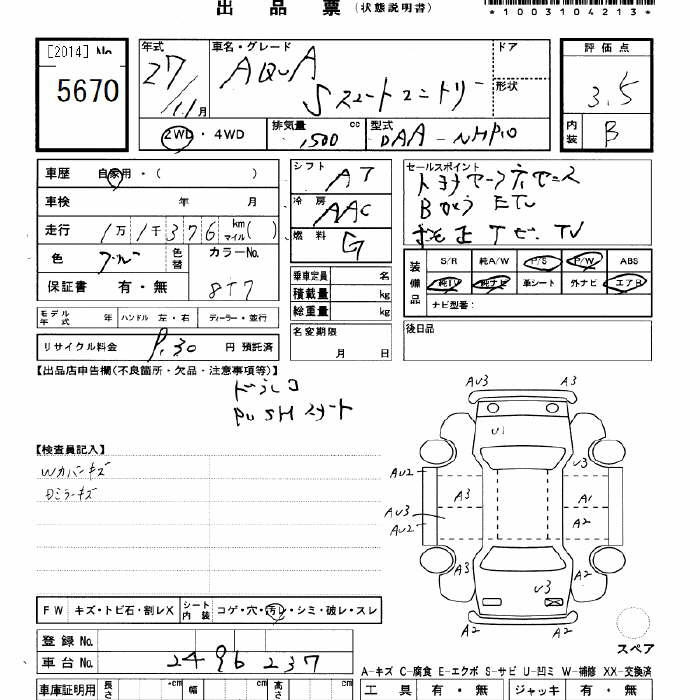 出 品 票 (状態説明書)
*1003104213*
[2014] No.
5670
年式
27/11月
車名・グレード
AQUA
Sスマートエントリー
ドア
形状
評価点
3.5
内装
B
2WD・4WD
排気量
1500
cc
型式
DAA-NHP10
車歴
自家用・( )
車検
年 月
走行
1万1千376
km
マイル( )
色
ブルー
色替
カラーNo.
8T7
保証書
有・無
モデル年式
年
ハンドル 左・右
ディーラー・並行
リサイクル料金
円 預託済
シフト
AT
冷房
AAC
燃料
G
乗車定員
名
積載量
kg
総重量
kg
名変期限
月 日
セールスポイント
Bカメラ
純正ナビ.TV
装備品
S/R
純A/W
P/S
P/W
ABS
純TV
純ナビ
革シート
外ナビ
エアB
ナビ型番:
後日品
【出品店申告欄(不良箇所・欠品・注意事項等)】
ドラレコ
PUSHスタート
【検査員記入】
Wカバーキズ
Dミラーキズ
AU3
A3
U1
U3
AU2
A3
AU3
AU2
A1
A2
A2
U3
A2
スペア
FW
キズ・トビ石・割レX
シート内装
コゲ・穴・汚レ・シミ・破レ・スレ
登録No.
車台No.
2496237
A-キズ C-腐食 E-エクボ S-サビ U-凹ミ W-補修 XX-交換済
車庫証明用
長さ
cm
幅
cm
高さ
cm
工具
有・無
ジャッキ
有・無